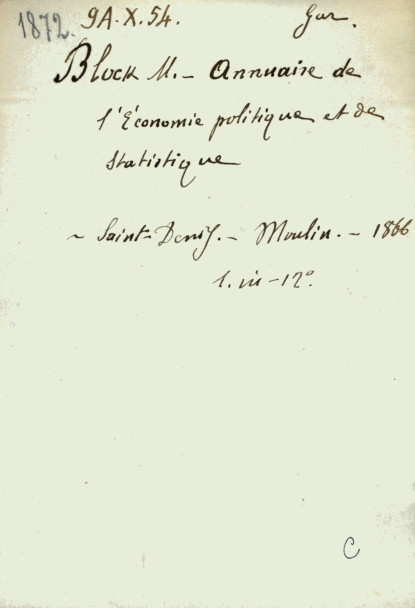 1872. 9A.X.54. Gar.
Block M. - Annuaire de
l'Économie politique et de
Statistique
~ Saint-Denis. - Moulin. - 1866
1. in-12º.
C